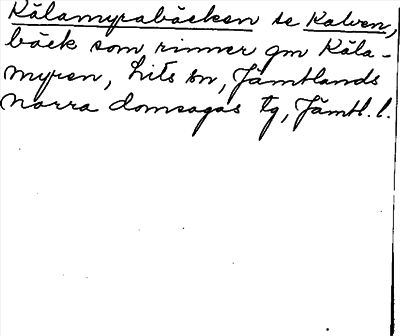 Kålamyrabäcken se Kalven,
bäck som rinner gm Kåla-
myren, Lits sn, Jämtlands
norra domsagas tg, Jämtl. l.